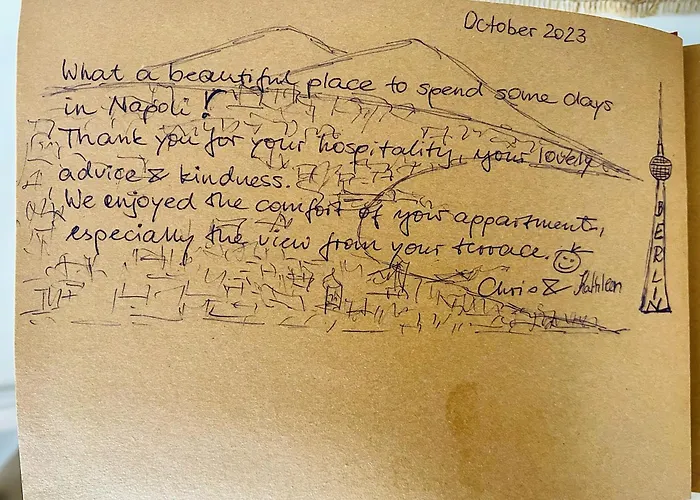 October 2023
What a beautiful place to spend some days
in Napoli !
Thank you for your hospitality, your lovely
advice & kindness.
We enjoyed the comfort of your appartment,
especially the view from your terrace.
Chris & Kathleen
BERLIN